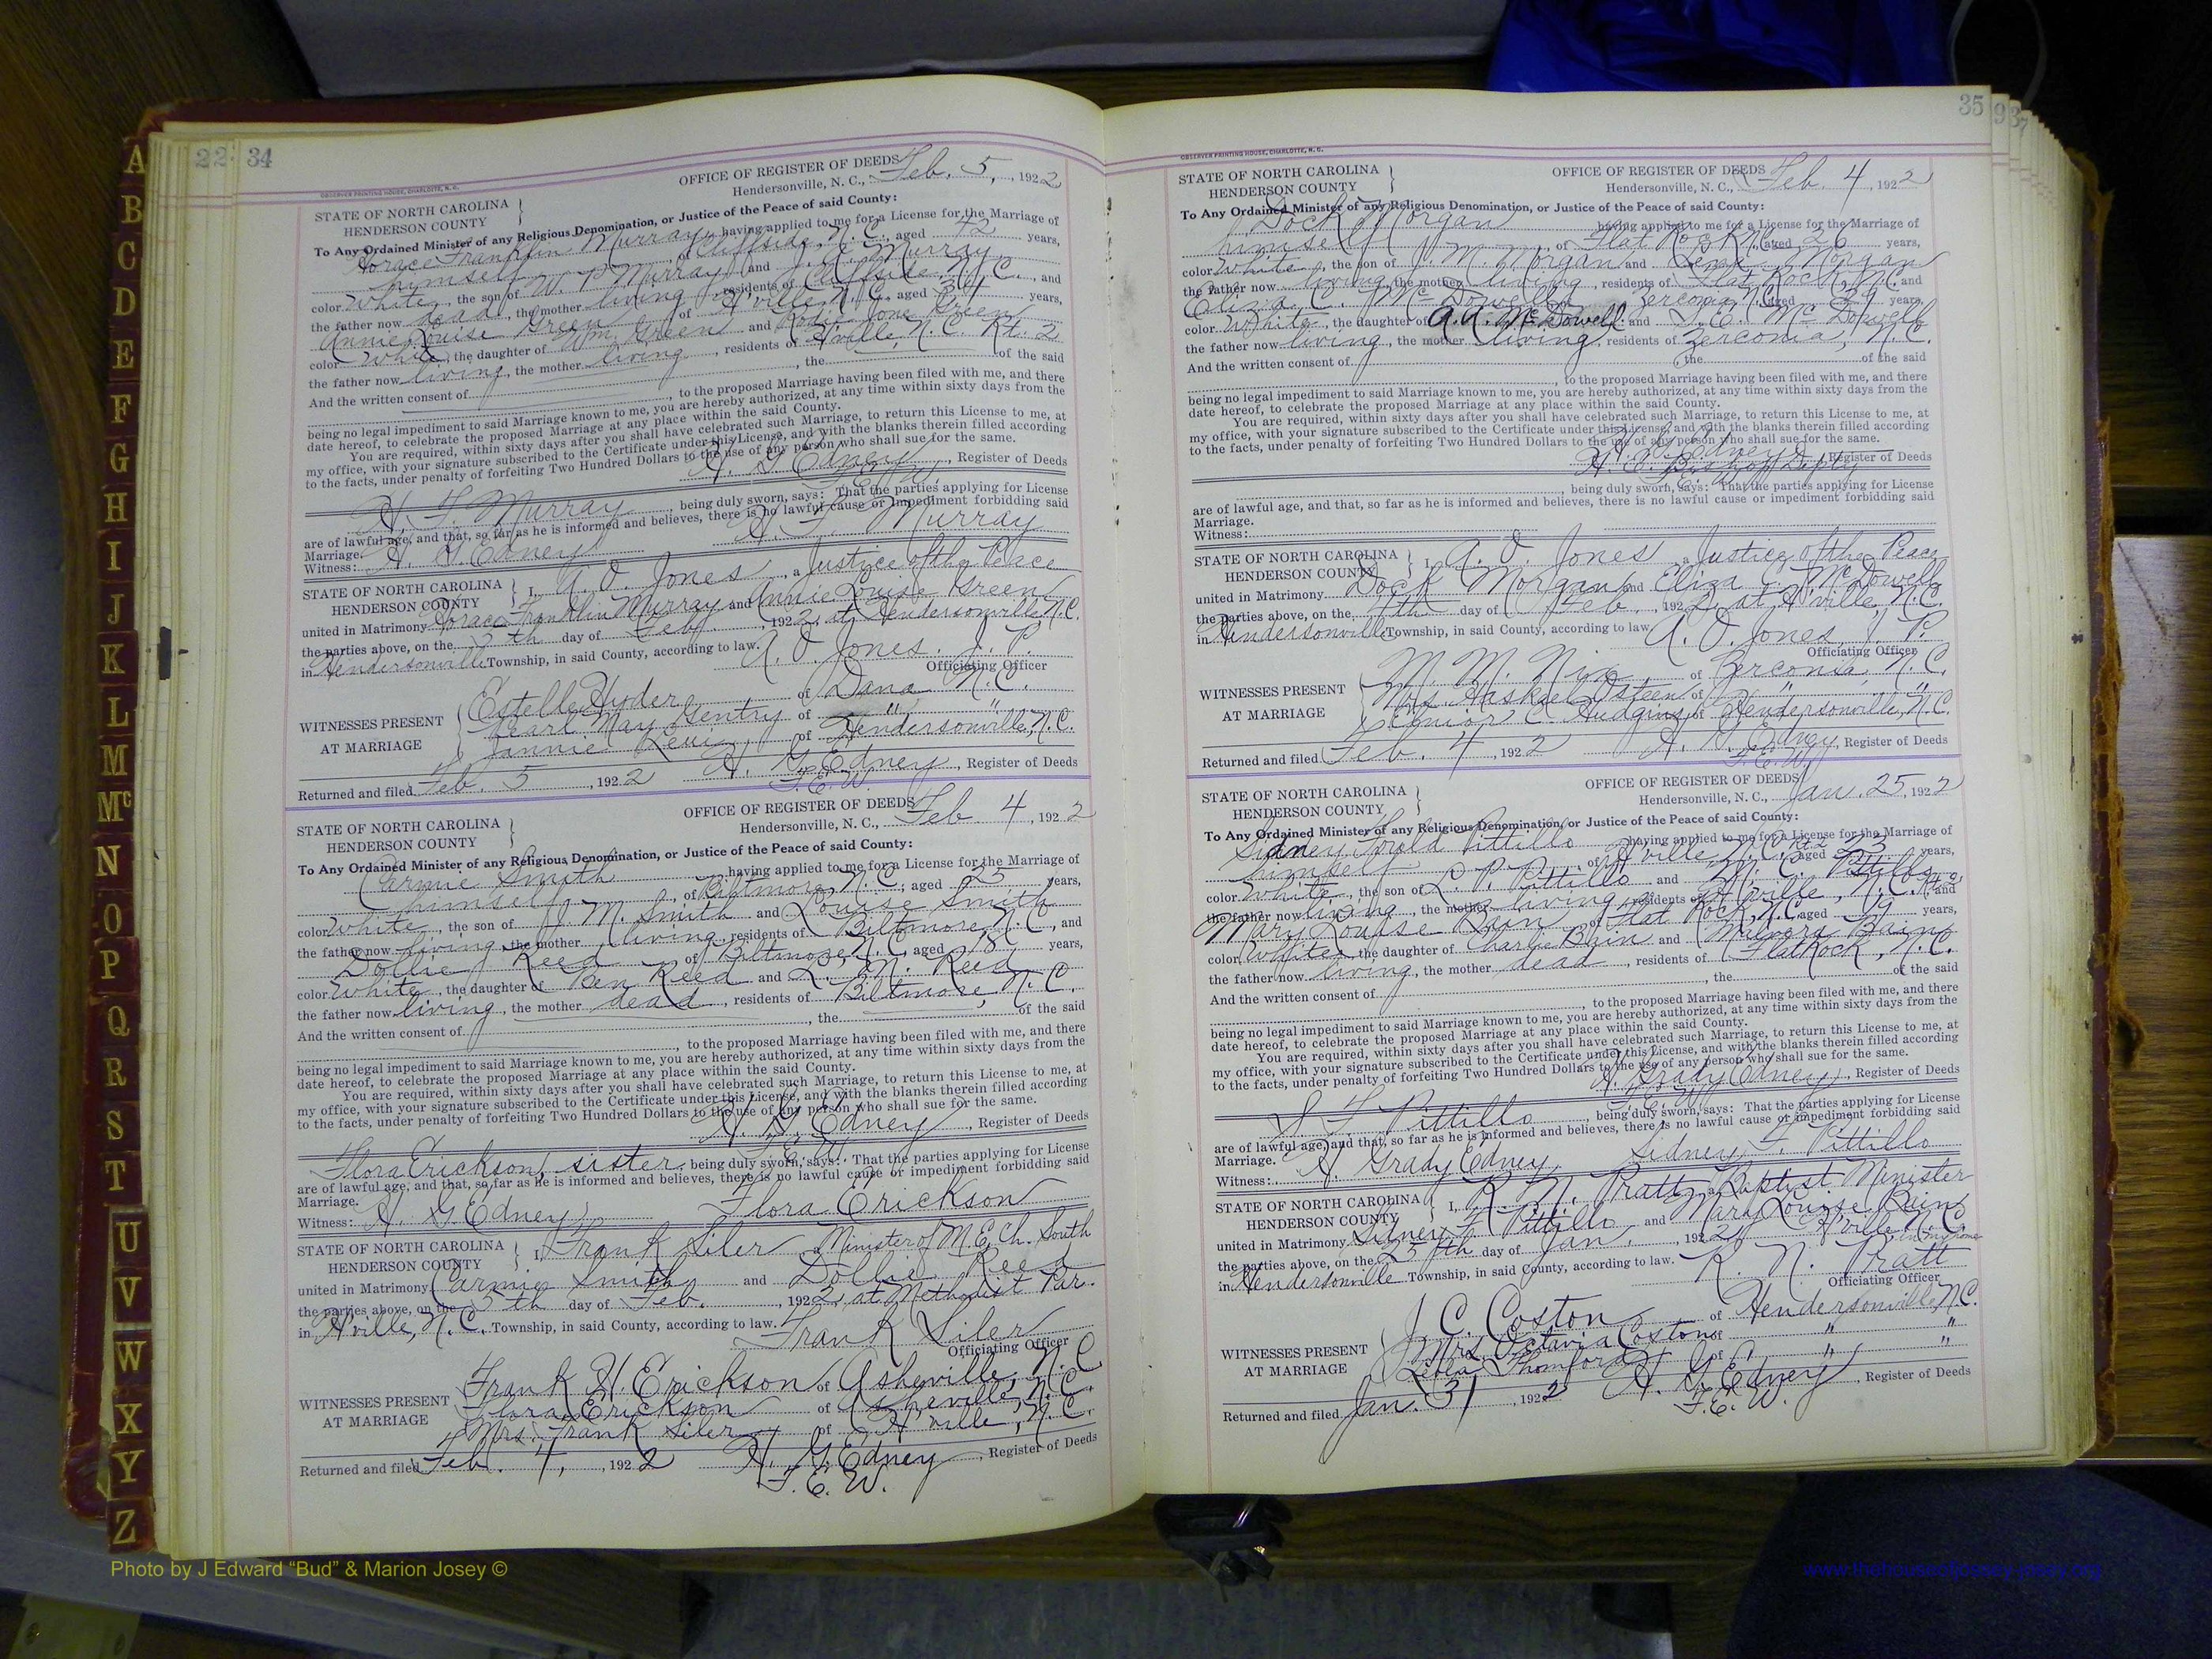 A
B
C
D
E
F
G
H
I
J
K
L
M
Mc
N
O
P
Q
R
S
T
U
V
W
X
Y
Z
22 34
OBSERVER PRINTING HOUSE, CHARLOTTE, N. C.
OFFICE OF REGISTER OF DEEDS
STATE OF NORTH CAROLINA
HENDERSON COUNTY
Hendersonville, N. C., Feb. 5, 1922
To Any Ordained Minister of any Religious Denomination, or Justice of the Peace of said County:
Horace Franklin Murray having applied to me for a License for the Marriage of
himself of Cliffside, N. C., aged 42 years,
color White, the son of W. P. Murray and Murray
the father now dead, the mother living, residents of Cliffside, N. C., and
Annie Louise Green of H'ville, N. C., aged 34 years,
color White, the daughter of Wm. Green and Green
the father now living, the mother living, residents of H'ville, N. C. Rt. 2
And the written consent of , the of the said
, to the proposed Marriage having been filed with me, and there
being no legal impediment to said Marriage known to me, you are hereby authorized, at any time within sixty days from the
date hereof, to celebrate the proposed Marriage at any place within the said County.
You are required, within sixty days after you shall have celebrated such Marriage, to return this License to me, at
my office, with your signature subscribed to the Certificate under this License, and with the blanks therein filled according
to the facts, under penalty of forfeiting Two Hundred Dollars to the use of any person who shall sue for the same.
H. G. Edney, Register of Deeds
F. E. W.
H. F. Murray, being duly sworn, says: That the parties applying for License
are of lawful age, and that, so far as he is informed and believes, there is no lawful cause or impediment forbidding said
Marriage. H. F. Murray
Witness: H. G. Edney
STATE OF NORTH CAROLINA
HENDERSON COUNTY
I, A. O. Jones, a Justice of the Peace
united in Matrimony Horace Franklin Murray and Annie Louise Green
the parties above, on the 5th day of Feb., 1922, at Hendersonville N.C.
in Hendersonville Township, in said County, according to law.
A. O. Jones, J. P.
Officiating Officer
WITNESSES PRESENT
AT MARRIAGE
Estelle Hyder of Dana N. C.
Pearl May Gentry of " "
Jannie Levi of Hendersonville, N.C.
Returned and filed Feb. 5, 1922 H. G. Edney, Register of Deeds
F. E. W.
STATE OF NORTH CAROLINA
HENDERSON COUNTY
OFFICE OF REGISTER OF DEEDS
Hendersonville, N. C., Feb. 4, 1922
To Any Ordained Minister of any Religious Denomination, or Justice of the Peace of said County:
Carmie Smith having applied to me for a License for the Marriage of
himself of Biltmore, N. C.; aged 25 years,
color White, the son of J. M. Smith and Louise Smith
the father now living, the mother living, residents of Biltmore, N. C., and
Dollie Reed of Biltmore, N. C., aged 18 years,
color White, the daughter of Ben Reed and L. M. Reed
the father now living, the mother dead, residents of Biltmore, N. C.
And the written consent of , the of the said
, to the proposed Marriage having been filed with me, and there
being no legal impediment to said Marriage known to me, you are hereby authorized, at any time within sixty days from the
date hereof, to celebrate the proposed Marriage at any place within the said County.
You are required, within sixty days after you shall have celebrated such Marriage, to return this License to me, at
my office, with your signature subscribed to the Certificate under this License, and with the blanks therein filled according
to the facts, under penalty of forfeiting Two Hundred Dollars to the use of any person who shall sue for the same.
H. G. Edney, Register of Deeds
F. E. W.
Flora Erickson, sister, being duly sworn, says: That the parties applying for License
are of lawful age, and that, so far as he is informed and believes, there is no lawful cause or impediment forbidding said
Marriage. Flora Erickson
Witness: H. G. Edney
STATE OF NORTH CAROLINA
HENDERSON COUNTY
I, Frank Siler Minister of M. E. Ch. South
united in Matrimony Carmie Smith and Dollie Reed
the parties above, on the 5th day of Feb., 1922, at Methodist Par.
in H'ville, N. C. Township, in said County, according to law.
Frank Siler
Officiating Officer
WITNESSES PRESENT
AT MARRIAGE
Frank H. Erickson of Asheville, N. C
Flora Erickson of Asheville, N. C.
Mrs. Frank Siler of H'ville, N. C.
Returned and filed Feb. 4, 1922 H. G. Edney, Register of Deeds
F. E. W.
35 9 37
OBSERVER PRINTING HOUSE, CHARLOTTE, N. C.
STATE OF NORTH CAROLINA
HENDERSON COUNTY
OFFICE OF REGISTER OF DEEDS
Hendersonville, N. C., Feb. 4, 1922
To Any Ordained Minister of any Religious Denomination, or Justice of the Peace of said County:
Dock Morgan having applied to me for a License for the Marriage of
himself, of Flat Rock N. C. aged 26 years,
color White, the son of J. M. Morgan and Morgan
the father now living, the mother living, residents of Flat Rock, N. C. and
Eliza C. McDowell of Zerconia, N. C. aged years,
color White, the daughter of A. A. McDowell and McDowell
the father now living, the mother living, residents of Zerconia, N. C.
And the written consent of the of the said
, to the proposed Marriage having been filed with me, and there
being no legal impediment to said Marriage known to me, you are hereby authorized, at any time within sixty days from the
date hereof, to celebrate the proposed Marriage at any place within the said County.
You are required, within sixty days after you shall have celebrated such Marriage, to return this License to me, at
my office, with your signature subscribed to the Certificate under this License, and with the blanks therein filled according
to the facts, under penalty of forfeiting Two Hundred Dollars to the use of any person who shall sue for the same.
Edney, Register of Deeds
, being duly sworn, says: That the parties applying for License
are of lawful age, and that, so far as he is informed and believes, there is no lawful cause or impediment forbidding said
Marriage.
Witness:
STATE OF NORTH CAROLINA
HENDERSON COUNTY
I, A. O. Jones, a Justice of the Peace
united in Matrimony Dock Morgan and Eliza C. McDowell
the parties above, on the 4th day of Feb., 1922, at H'ville, N. C.
in Hendersonville Township, in said County, according to law.
A. O. Jones, J. P.
Officiating Officer
WITNESSES PRESENT
AT MARRIAGE
M. M. Nix of Zerconia, N. C.
Mrs. Haskael Osteen of " "
C. Hudgins, of Hendersonville, N.C.
Returned and filed Feb. 4, 1922 H. G. Edney, Register of Deeds
F. E. W.
STATE OF NORTH CAROLINA
HENDERSON COUNTY
OFFICE OF REGISTER OF DEEDS
Hendersonville, N. C., Jan. 25, 1922
To Any Ordained Minister of any Religious Denomination, or Justice of the Peace of said County:
Sidney Pittillo having applied to me for a License for the Marriage of
himself of H'ville, N. C. Rt 2 aged 23 years,
color White, the son of L. P. Pittillo and M. C. Pittillo
the father now living, the mother living, residents of H'ville, N. C. and
Mary Louise Bain of Flat Rock, N. C. aged 19 years,
color White, the daughter of Charlie Bain and Bain
the father now living, the mother dead, residents of Flat Rock, N. C.
And the written consent of , the of the said
, to the proposed Marriage having been filed with me, and there
being no legal impediment to said Marriage known to me, you are hereby authorized, at any time within sixty days from the
date hereof, to celebrate the proposed Marriage at any place within the said County.
You are required, within sixty days after you shall have celebrated such Marriage, to return this License to me, at
my office, with your signature subscribed to the Certificate under this License, and with the blanks therein filled according
to the facts, under penalty of forfeiting Two Hundred Dollars to the use of any person who shall sue for the same.
H. Grady Edney, Register of Deeds
F. E. W.
S. F. Pittillo, being duly sworn, says: That the parties applying for License
are of lawful age, and that, so far as he is informed and believes, there is no lawful cause or impediment forbidding said
Marriage. Sidney F. Pittillo
Witness: H. Grady Edney
STATE OF NORTH CAROLINA
HENDERSON COUNTY
I, R. N. Pratt, a Baptist Minister
united in Matrimony Sidney F. Pittillo and Mary Louise Bain
the parties above, on the 25th day of Jan., 1922, H'ville, N. C. in my home
in Hendersonville Township, in said County, according to law.
R. N. Pratt
Officiating Officer
WITNESSES PRESENT
AT MARRIAGE
J. C. Coston of Hendersonville, N.C.
Mrs. Octavia Coston of " "
of " "
Returned and filed Jan. 31, 1922 H. G. Edney, Register of Deeds
F. E. W.
Photo by J Edward “Bud” & Marion Josey ©
www.thehouseofjossey-josey.org